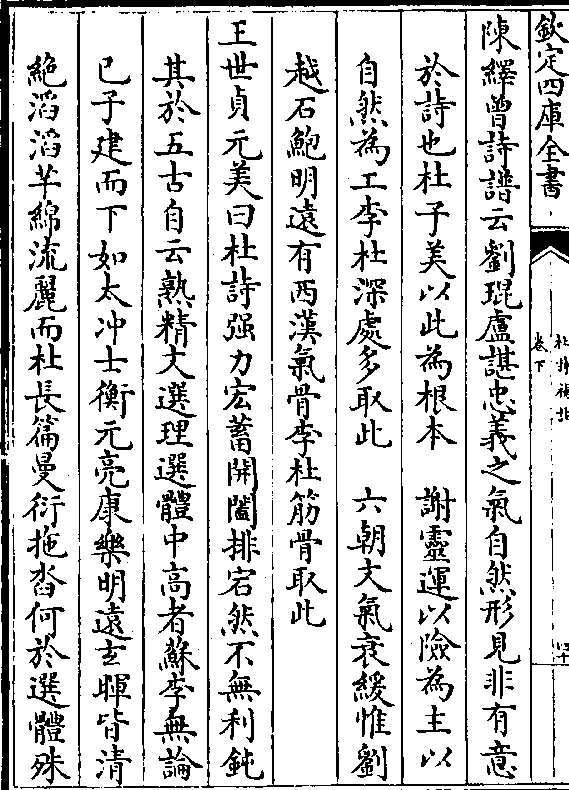 欽定四庫全書
杜詩攟
卷下
四十
陳繹曾詩譜云劉琨盧諶忠義之氣自然形見非有意
於詩也杜子美以此為根本　謝靈運以險為主以
自然為工李杜深處多取此　六朝文氣衰緩惟劉
越石鮑明遠有西漢氣骨李杜筋骨取此
王世貞元美曰杜詩强力宏蓄開闔排宕然不無利鈍
其於五古自云熟精文選理選體中高者蘇李無論
已子建而下如太冲士衡元亮康樂明遠玄暉皆清
絶滔滔芊綿流麗而杜長篇曼衍拖沓何於選體殊